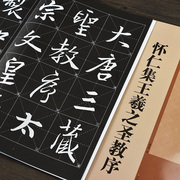 大唐三藏
聖教序
宗文皇
製
太
怀仁集王羲之圣教序